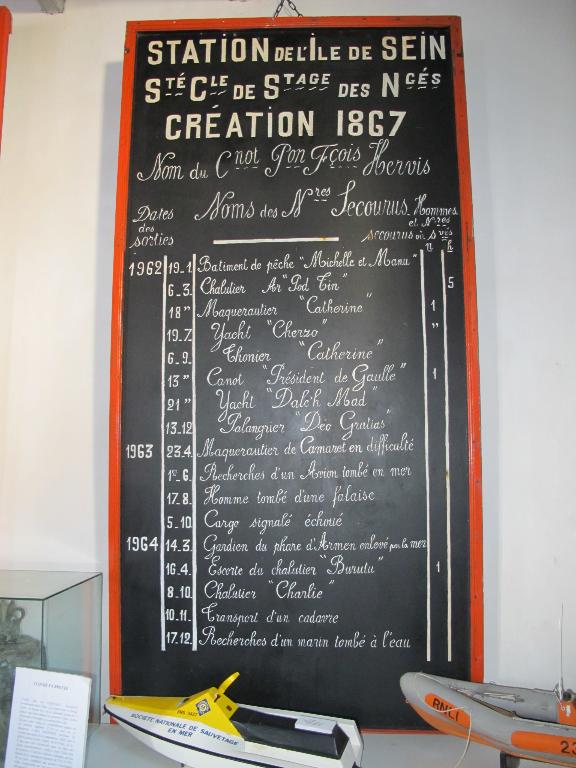 STATION DE L'ÎLE DE SEIN
STÉ CLE DE STAGE DES NGÉS
CRÉATION 1867
Nom du Cnot Pon Fçois Hervis
Dates des sorties
Noms des Nres Secourus
Hommes et Nres secourus ou svés
n h
1962 19.1. Batiment de pêche "Michelle et Manu"
6.3. Chalutier Ar "Pod Tin" 5
18 " Maquerautier "Catherine" 1
19.7. Yacht "Cherzo" "
6.9. Thonier "Catherine"
13 " Canot "Président de Gaulle" 1
21 " Yacht "Dalc'h Mad"
13.12 Palangrier "Déo Gratias"
1963 23.4. Maquerautier de Camaret en difficulté
1er.6. Recherches d'un Avion tombé en mer
17.8. Homme tombé d'une falaise
5.10. Cargo signalé échoué
1964 14.3. Gardien du phare d'Armen enlevé par la mer
16.4. Escorte du chalutier "Burutu" 1
8.10. Chalutier "Charlie"
10.11. Transport d'un cadavre
17.12. Recherches d'un marin tombé à l'eau
SOCIÉTÉ NATIONALE DE SAUVETAGE
EN MER
RNLI
23